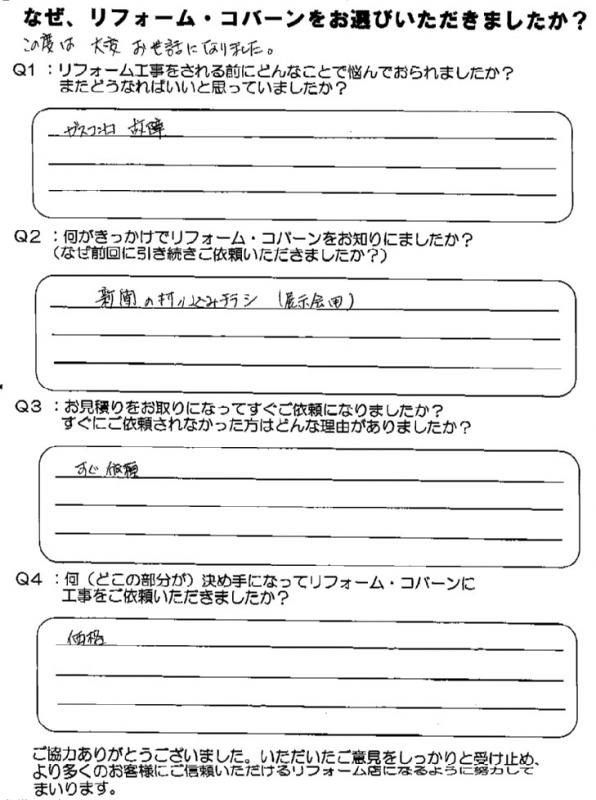 なぜ、リフォーム・コバーンをお選びいただきましたか？
この度は 大変 お世話になりました。
Q1：リフォーム工事をされる前にどんなことで悩んでおられましたか？
またどうなればいいと思っていましたか？
ガスコンロ 故障
Q2：何がきっかけでリフォーム・コバーンをお知りにましたか？
（なぜ前回に引き続きご依頼いただきましたか？）
新聞の折り込みチラシ （展示会用）
Q3：お見積りをお取りになってすぐご依頼になりましたか？
すぐにご依頼されなかった方はどんな理由がありましたか？
すぐ依頼
Q4：何（どこの部分が）決め手になってリフォーム・コバーンに
工事をご依頼いただきましたか？
価格
ご協力ありがとうございました。いただいたご意見をしっかりと受け止め、
より多くのお客様にご信頼いただけるリフォーム店になるように努力して
まいります。